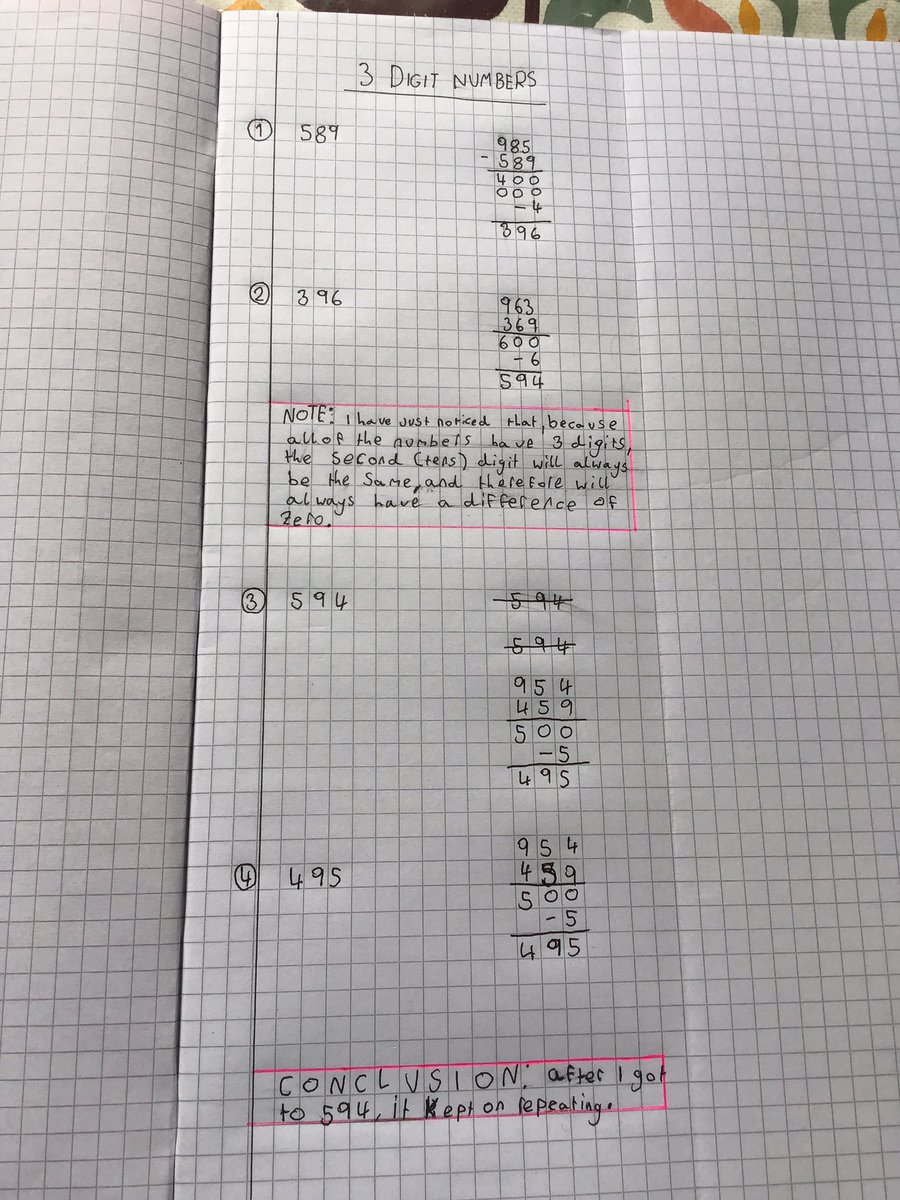 3 DIGIT NUMBERS
① 589
985
- 589
400
000
-4
396
② 396
963
369
600
-6
594
NOTE: I have just noticed that, because
all of the numbers have 3 digits,
the second (tens) digit will always
be the same, and therefore will
always have a difference of
zero.
③ 594
594
594
954
459
500
-5
495
④ 495
954
459
500
-5
495
CONCLUSION: after I got
to 594, it kept on repeating.